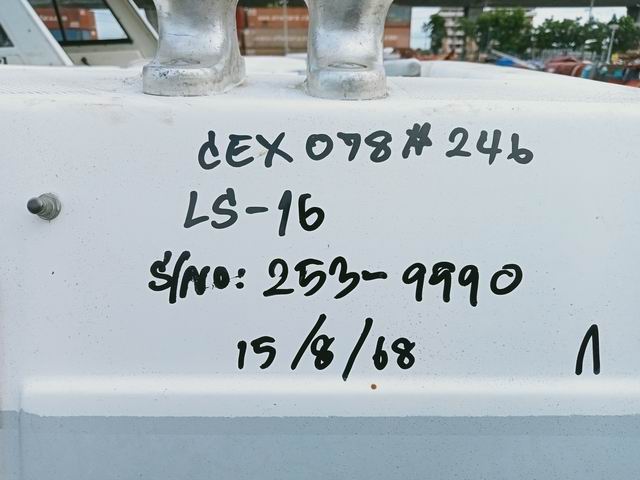 CEX 078 # 246
LS-16
S/NO: 253-9990
15/8/68